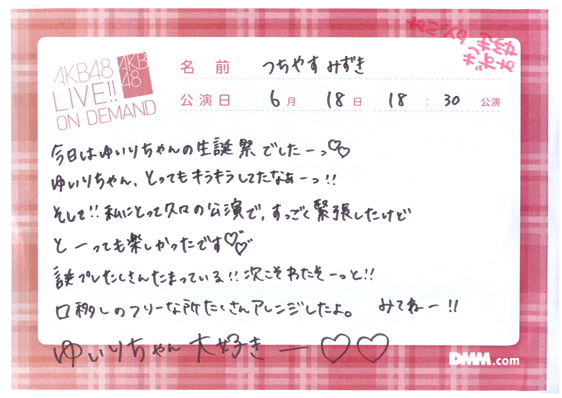 AKB48
LIVE!!
ON DEMAND
AKB
48
名前 つちやすみずき
公演日 6月 18日 18:30 公演
今日はゆいりちゃんの生誕祭でしたーっ♡♡
ゆいりちゃん、とってもキラキラしてたなぁーっ!!
そして!! 私にとって久々の公演で、すっごく緊張したけど
とーっても楽しかったです♡♡
誕プレたくさんたまっている!! 次こそわたそーっと!!
口移しのフリーな所たくさんアレンジしたよ。 みてねー!!
ゆいりちゃん大好きー♡♡
DMM.com